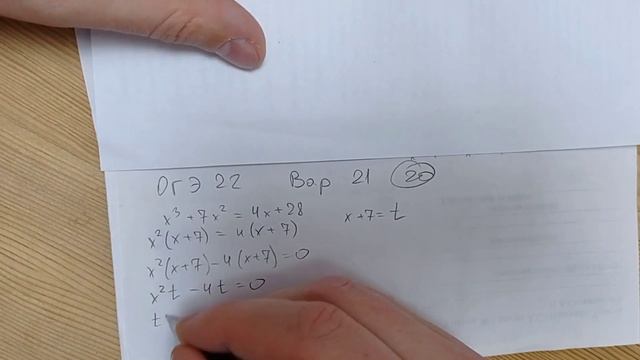 ОГЭ 22 Вар 21 20
x³ + 7x² = 4x + 28 x + 7 = t
x²(x + 7) = 4(x + 7)
x²(x + 7) - 4(x + 7) = 0
x²t - 4t = 0
t